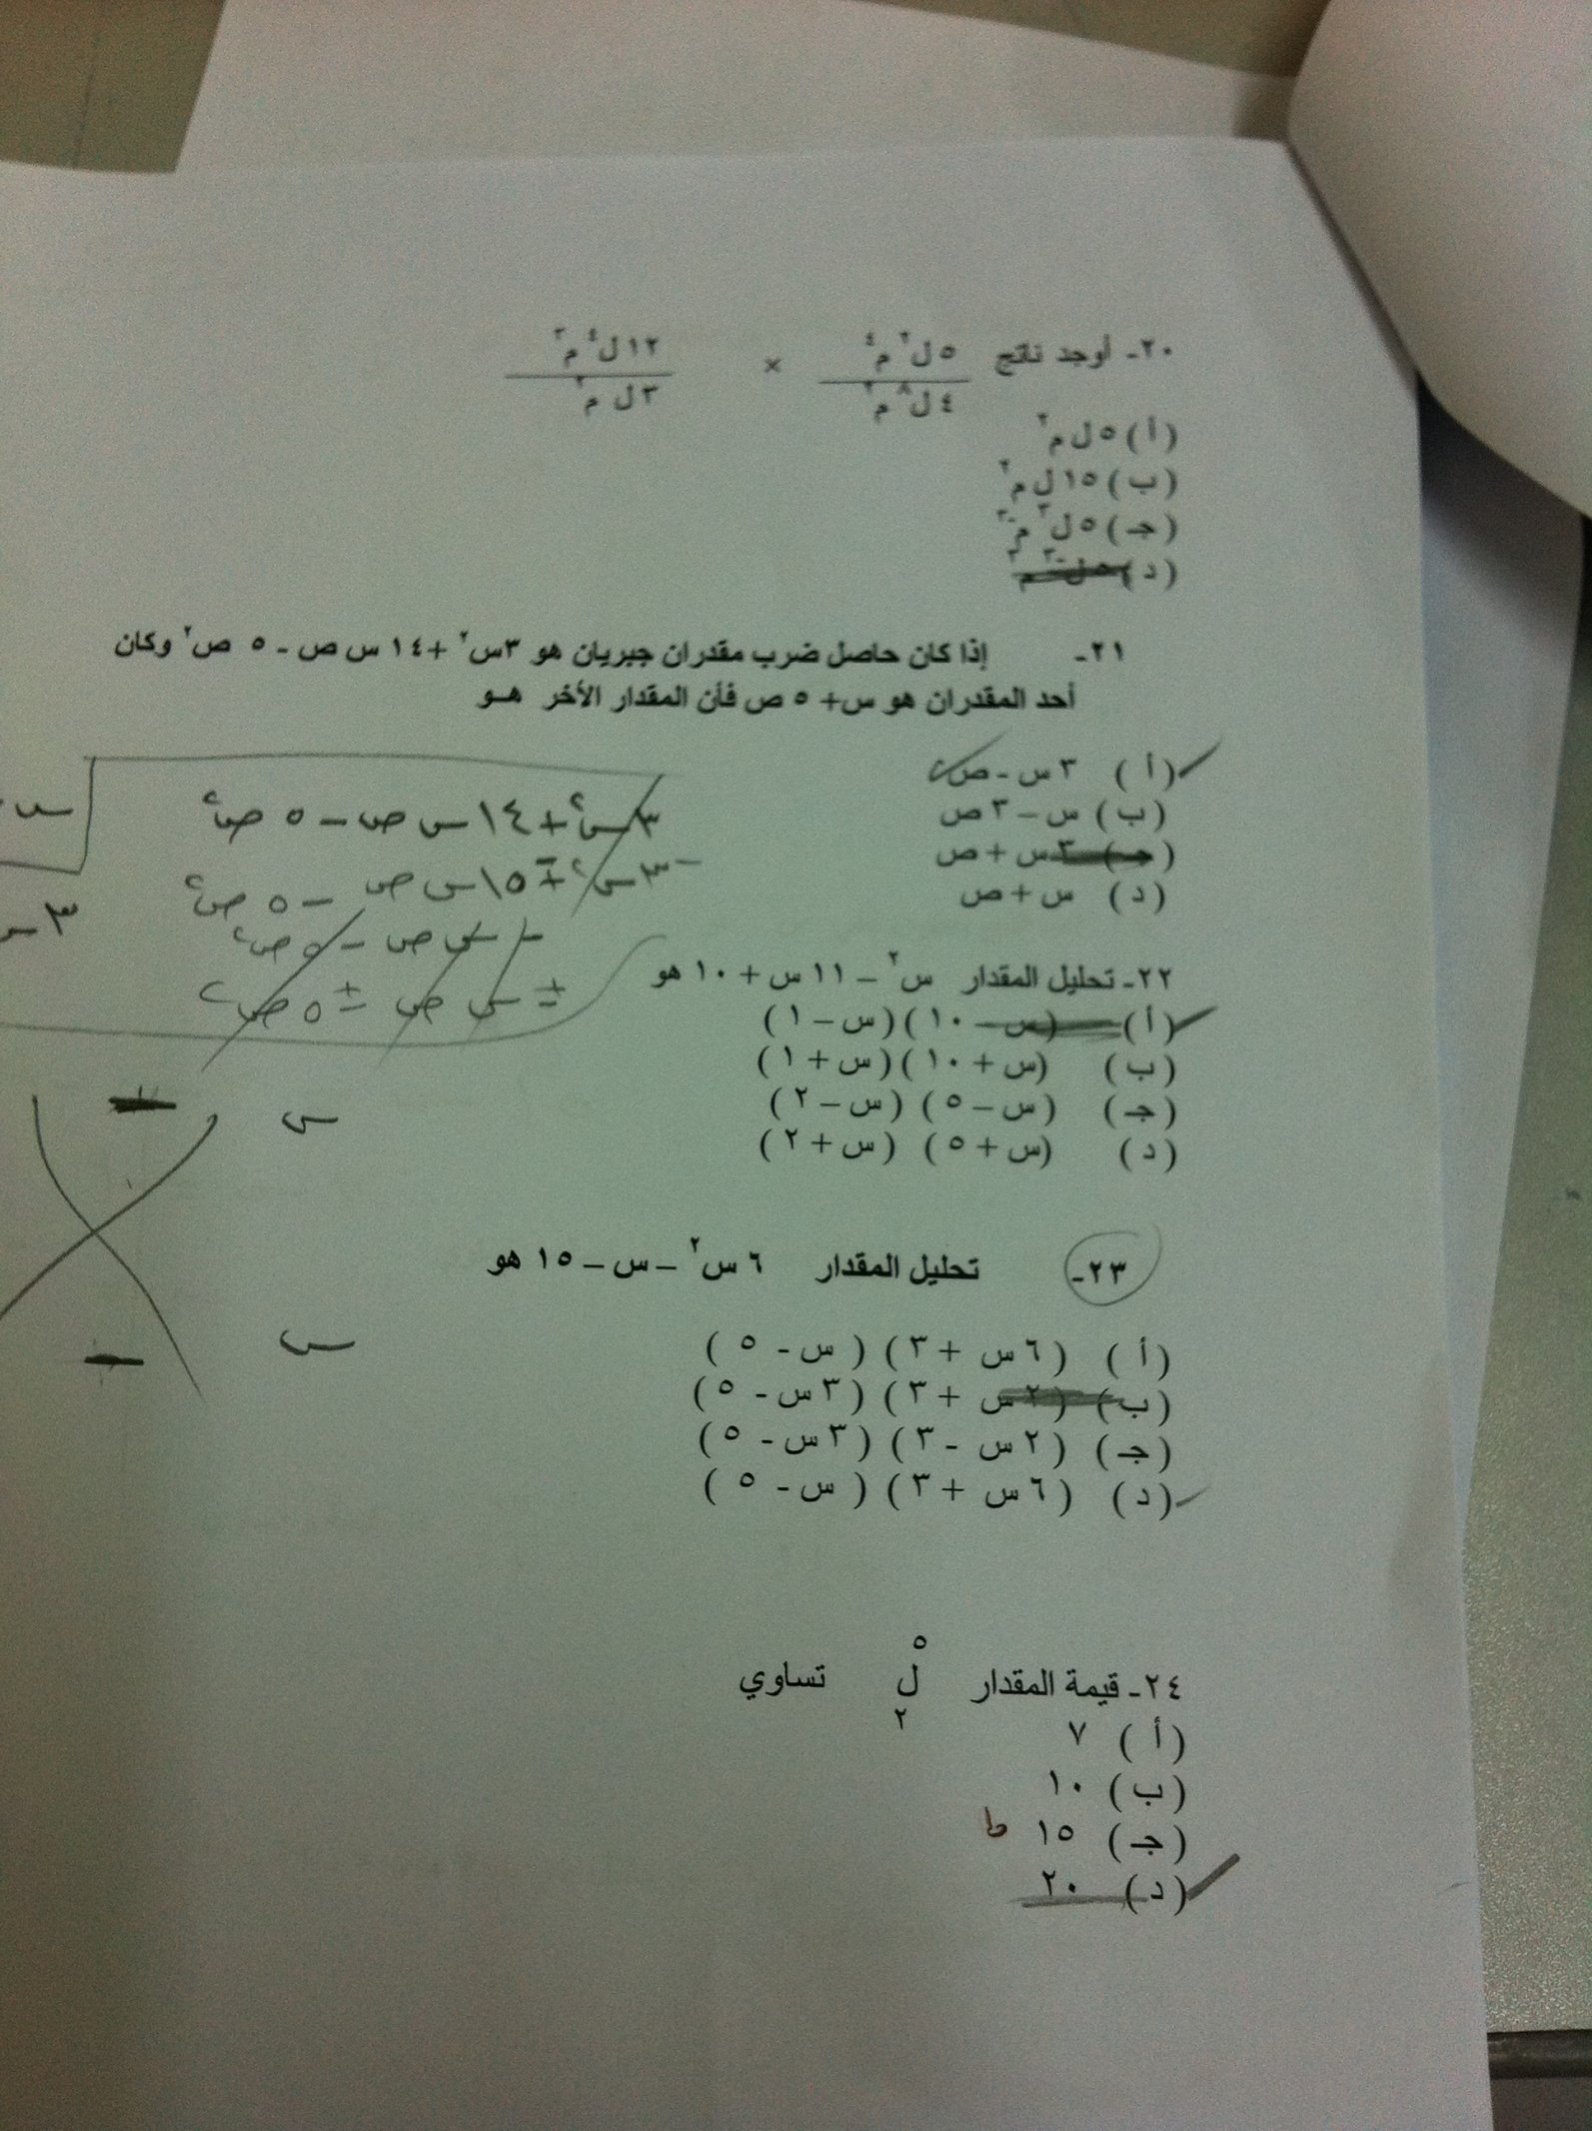 ٢٠- أوجد ناتج ٥ ل٢ م٤ × ١٢ ل٤ م٣
٤ ل٨ م٢ ٣ ل م٢
( أ ) ٥ ل م٢
( ب ) ١٥ ل م٢
( جـ ) ٥ ل٣ م-٣
( د ) ٥ ل-٣ م٣
٢١- إذا كان حاصل ضرب مقدران جبريان هو ٣س٢ + ١٤ س ص - ٥ ص٢ وكان
أحد المقدران هو س+ ٥ ص فأن المقدار الأخر هـو
( أ ) ٣ س - ص
( ب ) س – ٣ ص
( جـ ) ٣ س + ص
( د ) س + ص
٣س٢ + ١٤ س ص – ٥ ص٢
–٣س٢ + ١٥ س ص – ٥ ص٢
– س ص – ٥ ص٢
± س ص ± ٥ ص٢
٣س
٢٢- تحليل المقدار س٢ – ١١ س + ١٠ هو
( أ ) (س – ١٠ ) ( س – ١ )
( ب ) (س + ١٠ ) ( س + ١ )
( جـ ) ( س – ٥ ) ( س – ٢ )
( د ) (س + ٥ ) ( س + ٢ )
س –
س –
٢٣- تحليل المقدار ٦ س٢ – س – ١٥ هو
( أ ) ( ٦ س + ٣ ) ( س - ٥ )
( ب ) ( ٢ س + ٣ ) ( ٣ س - ٥ )
( جـ ) ( ٢ س - ٣ ) ( ٣ س - ٥ )
( د ) ( ٦ س + ٣ ) ( س - ٥ )
٢٤- قيمة المقدار ٥ل٢ تساوي
( أ ) ٧
( ب ) ١٠
( جـ ) ١٥ ط
( د ) ٢٠